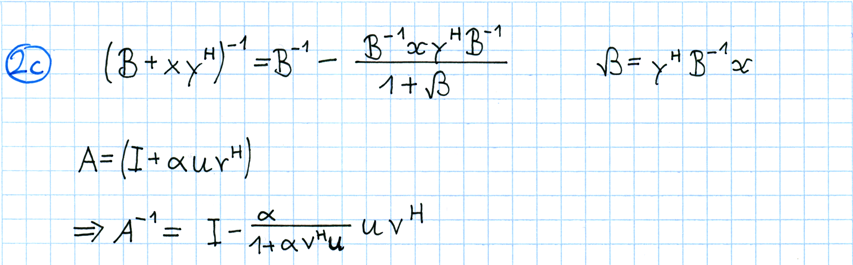 2c (B + xy^H)^-1 = B^-1 - (B^-1 x y^H B^-1)/(1 + β) β = y^H B^-1 x
A = (I + α u v^H)
⇒ A^-1 = I - α/(1 + α v^H u) u v^H